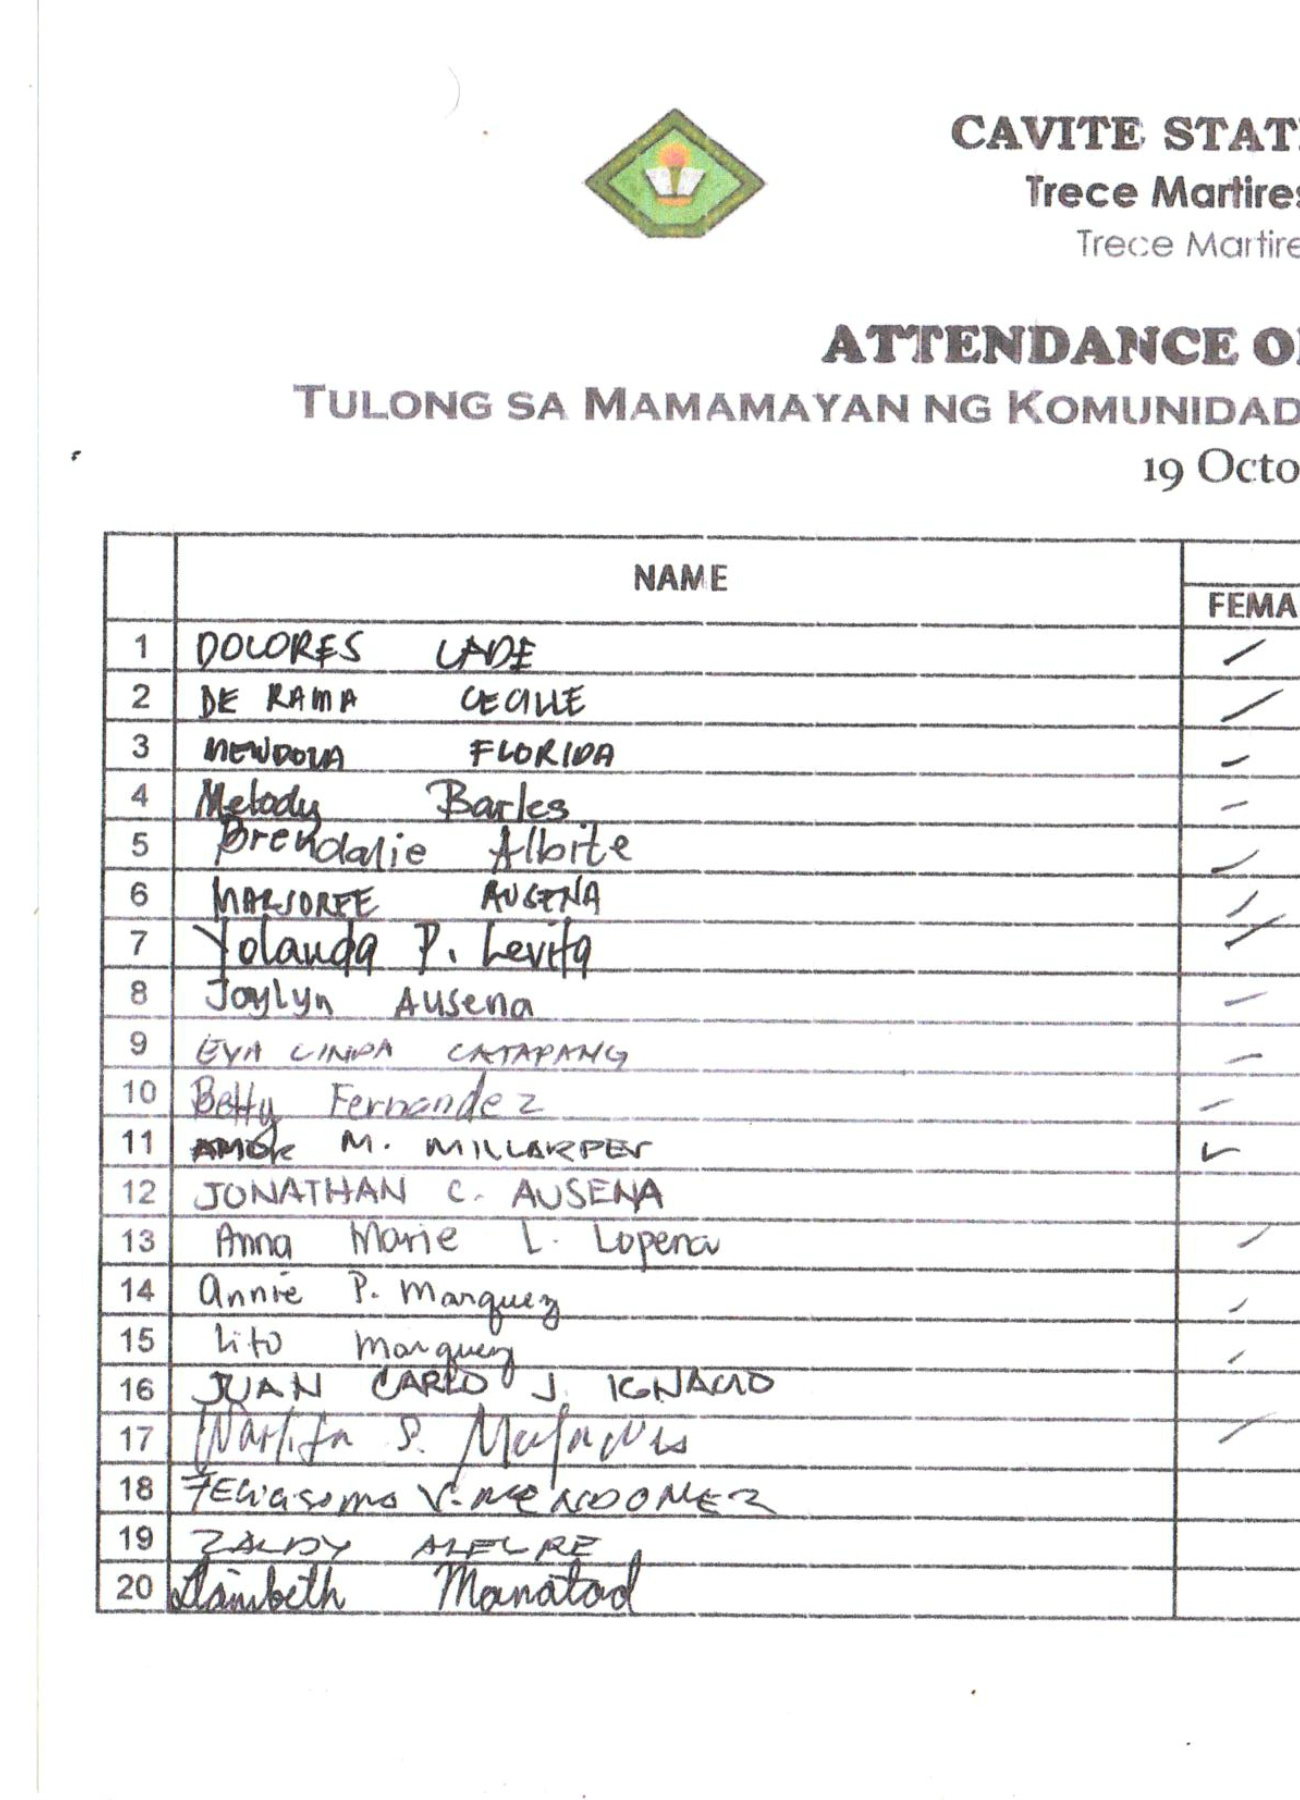 CAVITE STAT
Trece Martires
Trece Martire
ATTENDANCE O
TULONG SA MAMAMAYAN NG KOMUNIDAD
19 Octo
NAME
FEMA
1 DOLORES LADE
2 DE RAMA CECILLE
3 MENDOZA FLORIDA
4 Melody Barles
5 Brendalie Albite
6 MARJOREE AUSENA
7 Yolanda P. Levita
8 Joylyn Ausena
9 EVA LINDA CATAPANG
10 Betty Fernandez
11 AMOR M. MILLARPER
12 JONATHAN C. AUSENA
13 Anna Marie L. Lopena
14 Annie P. Marquez
15 Lito Marquez
16 JUAN CARLO J. IGNACIO
17 S.
18 V.
19 ZALDY ALEGRE
20 Manatad